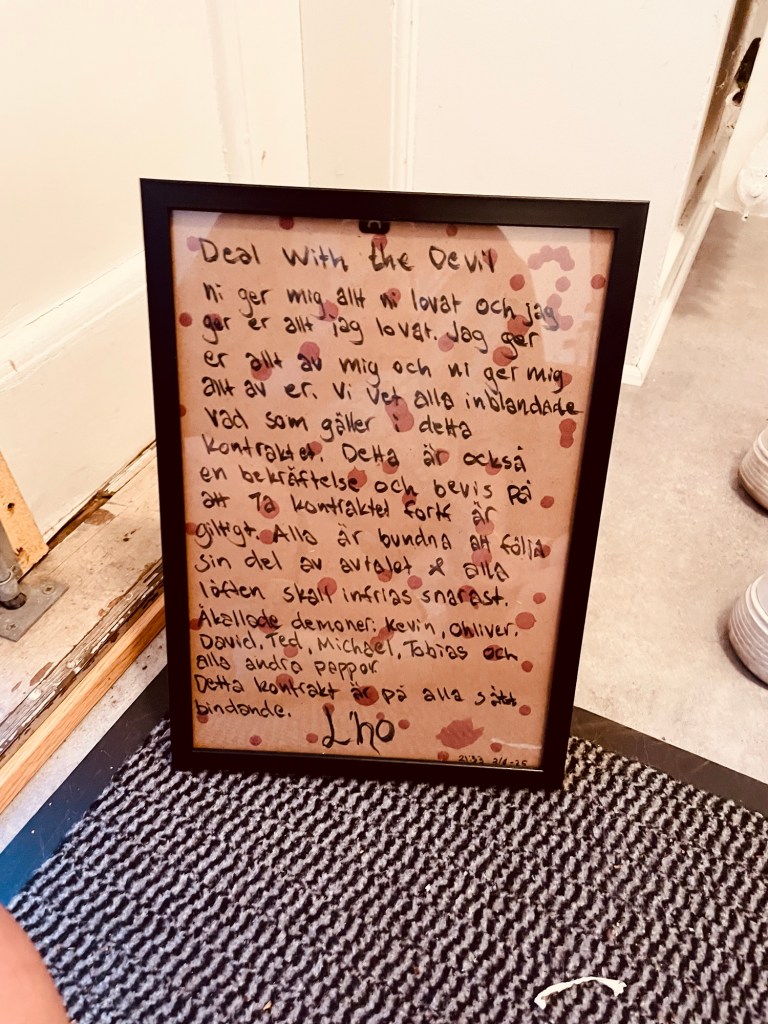 Deal with the Devil
Ni ger mig allt ni lovat och jag
ger er allt jag lovat. Jag ger
er allt av mig och ni ger mig
allt av er. Vi vet alla inblandade
vad som gäller i detta
kontraktet. Detta är också
en bekräftelse och bevis på
att 7a kontraktet fortf är
giltigt. Alla är bundna att följa
sin del av avtalet & alla
löften skall infrias snarast.
Åkallade demoner: Kevin, Ohliver,
David, Ted, Michael, Tobias och
alla andra pappor.
Detta kontrakt är på alla sätt
bindande.
L'ho
21:33